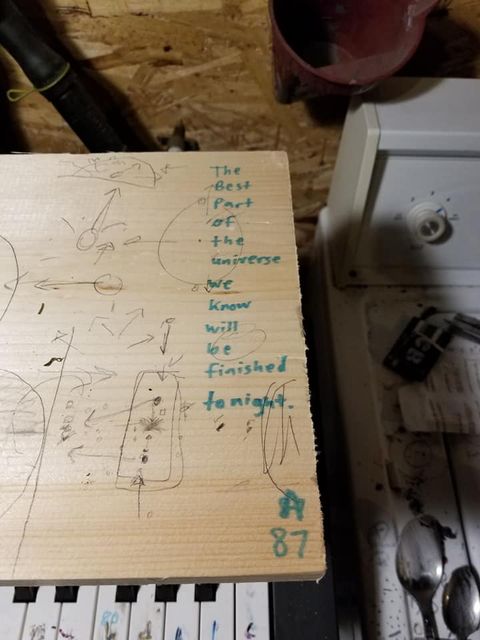 The
Best
Part
of
the
universe
we
know
will
be
finished
tonight.
A
87